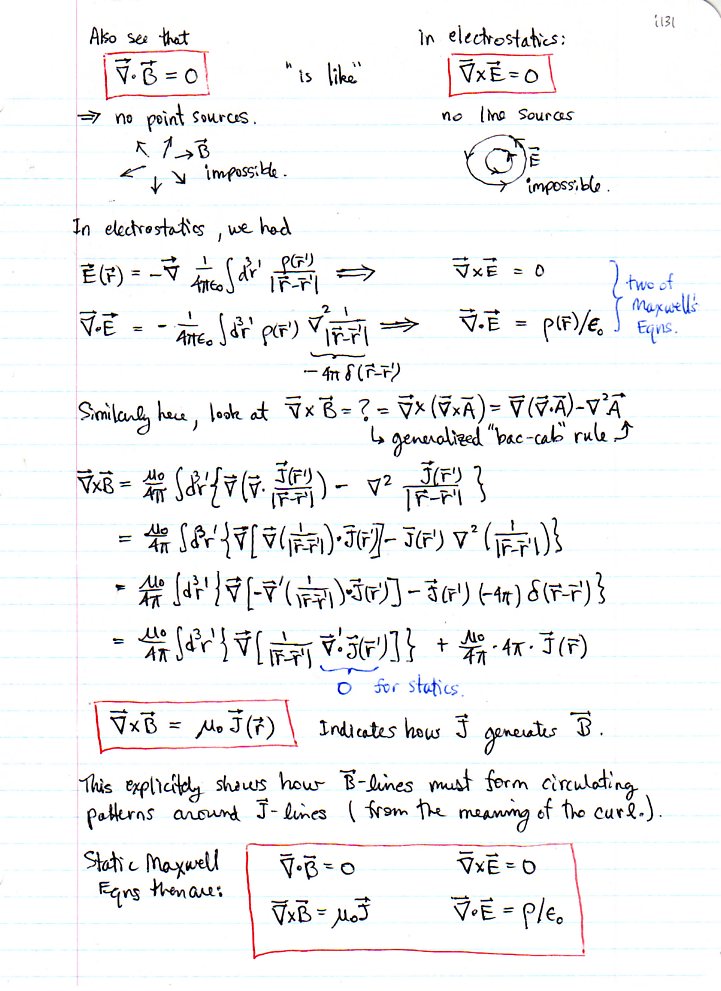 i131
Also see that In electrostatics:
∇⃗·B⃗ = 0 "is like" ∇⃗×E⃗ = 0
⇒ no point sources. no line sources
B⃗ impossible. E⃗ impossible.
In electrostatics, we had
E⃗(r⃗) = -∇⃗ 1/4πε₀ ∫d³r' ρ(r⃗')/|r⃗-r⃗'| ⟹ ∇⃗×E⃗ = 0
∇⃗·E⃗ = - 1/4πε₀ ∫d³r' ρ(r⃗') ∇² 1/|r⃗-r⃗'| ⟹ ∇⃗·E⃗ = ρ(r⃗)/ε₀
-4π δ(r⃗-r⃗')
} two of
Maxwell's
Eqns.
Similarly here, look at ∇⃗×B⃗ = ? = ∇⃗×(∇⃗×A⃗) = ∇⃗(∇⃗·A⃗) - ∇²A⃗
↳ generalized "bac-cab" rule ↗
∇⃗×B⃗ = μ₀/4π ∫d³r' {∇⃗(∇⃗· J⃗(r⃗')/|r⃗-r⃗'|) - ∇² J⃗(r⃗')/|r⃗-r⃗'| }
= μ₀/4π ∫d³r' {∇⃗[∇⃗(1/|r⃗-r⃗'|)·J⃗(r⃗')] - J⃗(r⃗') ∇² (1/|r⃗-r⃗'|)}
= μ₀/4π ∫d³r' {∇⃗[-∇⃗'(1/|r⃗-r⃗'|)·J⃗(r⃗')] - J⃗(r⃗') (-4π) δ(r⃗-r⃗')}
= μ₀/4π ∫d³r' {∇⃗[1/|r⃗-r⃗'| ∇⃗'·J⃗(r⃗')]} + μ₀/4π · 4π · J⃗(r⃗)
0 for statics.
∇⃗×B⃗ = μ₀ J⃗(r⃗) Indicates how J⃗ generates B⃗.
This explicitly shows how B⃗-lines must form circulating
patterns around J⃗-lines (from the meaning of the curl.).
Static Maxwell
Eqns then are:
∇⃗·B⃗ = 0 ∇⃗×E⃗ = 0
∇⃗×B⃗ = μ₀J⃗ ∇⃗·E⃗ = ρ/ε₀